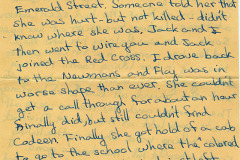 Emerald Street. Someone told her that
she was hurt - but not killed - didn't
know where she was. Jack and I
then went to wire you and Jack
joined the Red Cross. I drove back
to the Newmans and Flay was in
worse shape than ever. She couldn't
get a call through for about an hour
Finally did, but still couldn't find
Cadeen. Finally she got hold of a cab
to go to the school where the colored